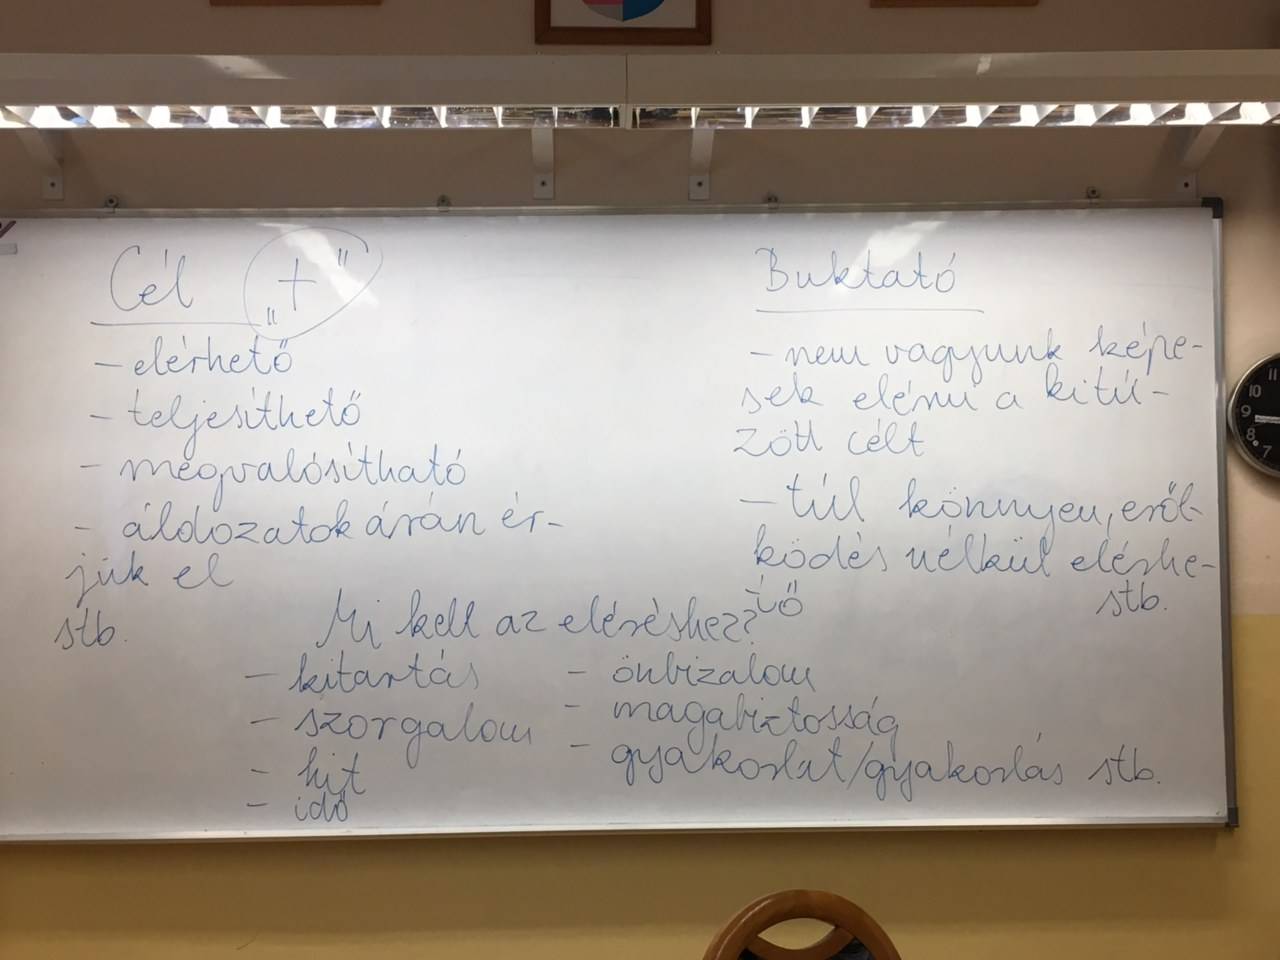 Cél „+"
- elérhető
- teljesíthető
- megvalósítható
- áldozatok árán ér-
jük el
stb.
Buktató
- nem vagyunk képe-
sek elérni a kitű-
zött célt
- túl könnyen, eről-
ködés nélkül elérhe-
tő
stb.
Mi kell az eléréshez?
- kitartás
- szorgalom
- hit
- idő
- önbizalom
- magabiztosság
- gyakorlat/gyakorlás stb.
11
10
9
8
7